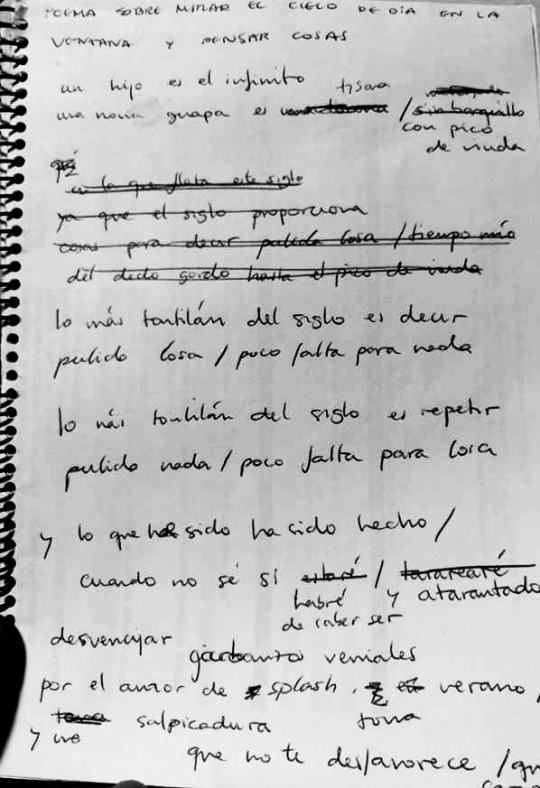 POEMA SOBRE MIRAR EL CIELO DE DÍA EN LA
VENTANA Y PENSAR COSAS
un hijo es el infinito tisana
una novia guapa es / sin barquillo
con pico
de viuda
qué
en la que flota este siglo
ya que el siglo proporciona
cosas para decir pulido losa / tiempo mío
del dedo gordo hasta el pico de viuda
lo más tontilán del siglo es decir
pulido losa / poco falta para nada
lo más tontilán del siglo es repetir
pulido nada / poco falta para losa
y lo que ha sido ha sido hecho /
cuando no sé si estaré / tararearé
habré y atarantado
de saber ser
desvencijar
garbanzos veniales
por el amor de splash, verano,
salpicadura toma
y me
que no te desfavorece /